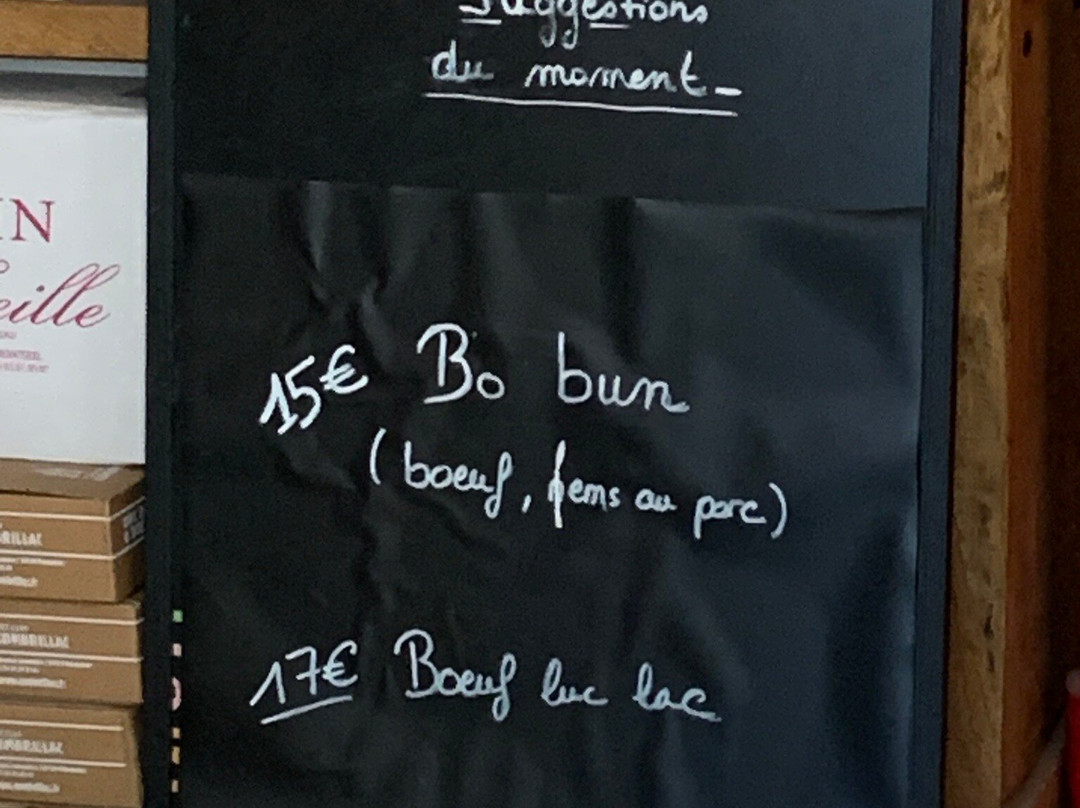 Suggestions
du moment_
15€ Bo bun
(boeuf, nems au porc)
17€ Boeuf luc lac
IN
eille